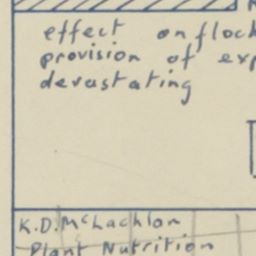 effect on flock
provision of exp
devastating
K.D. McLachlan
Plant Nutrition